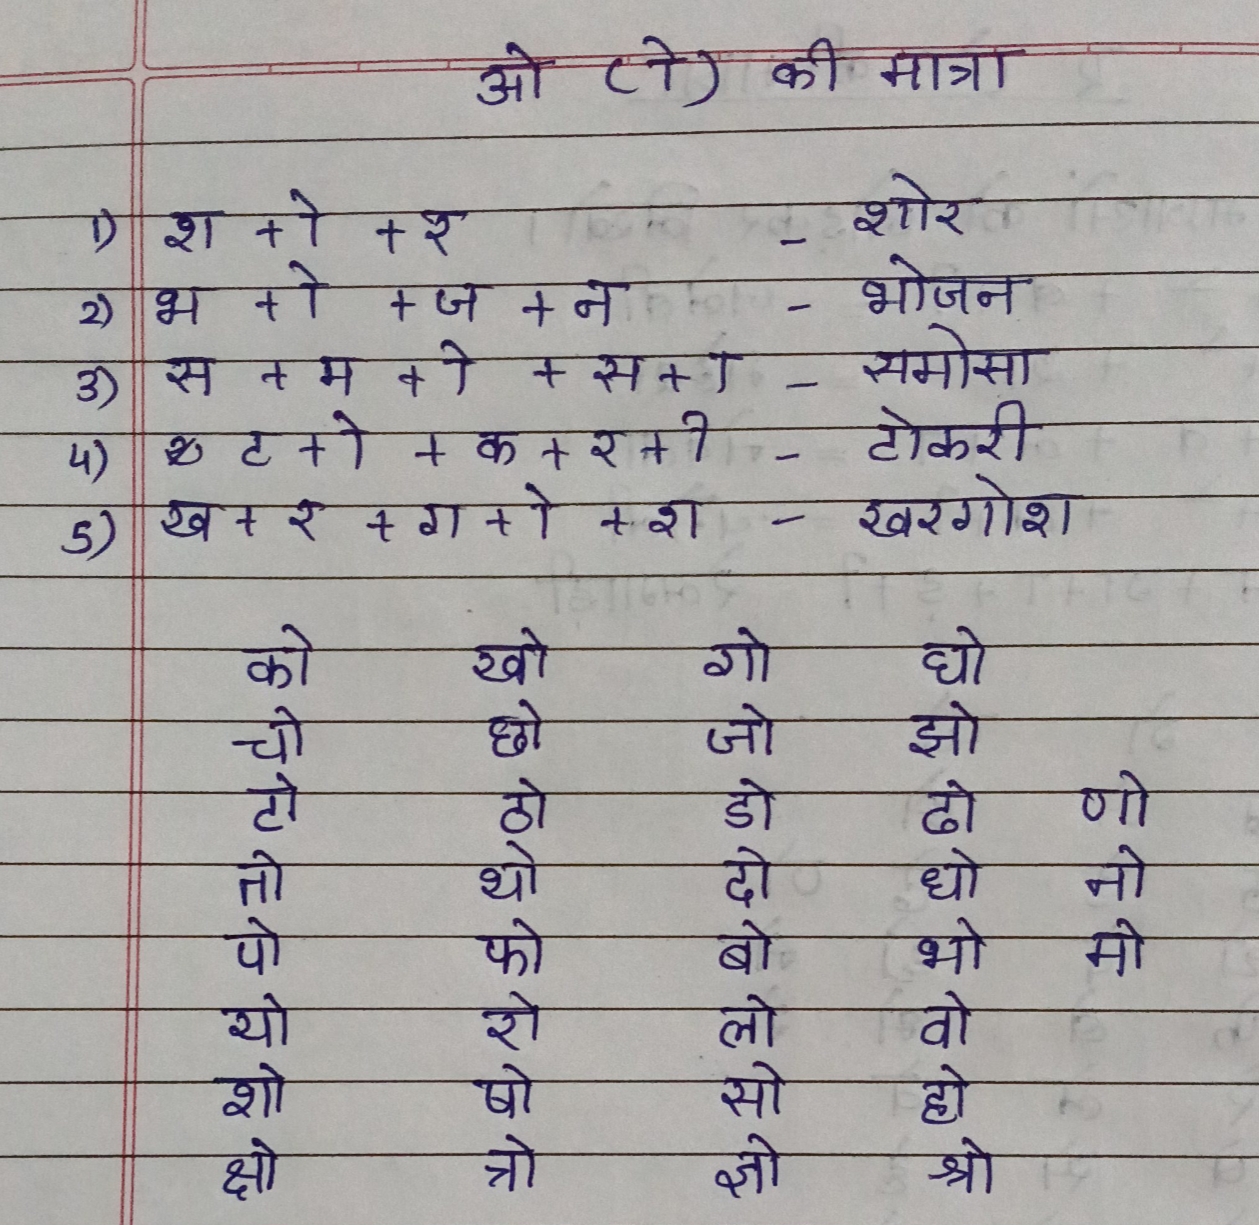 ओ (ो) की मात्रा
1) श + ो + र - शोर
2) भ + ो + ज + न - भोजन
3) स + म + ो + स + ा - समोसा
4) ट + ो + क + र + ी - टोकरी
5) ख + र + ग + ो + श - खरगोश
को खो गो घो
चो छो जो झो
टो ठो डो ढो णो
तो थो दो धो नो
पो फो बो भो मो
यो रो लो वो
शो षो सो हो
क्षो त्रो ज्ञो श्रो